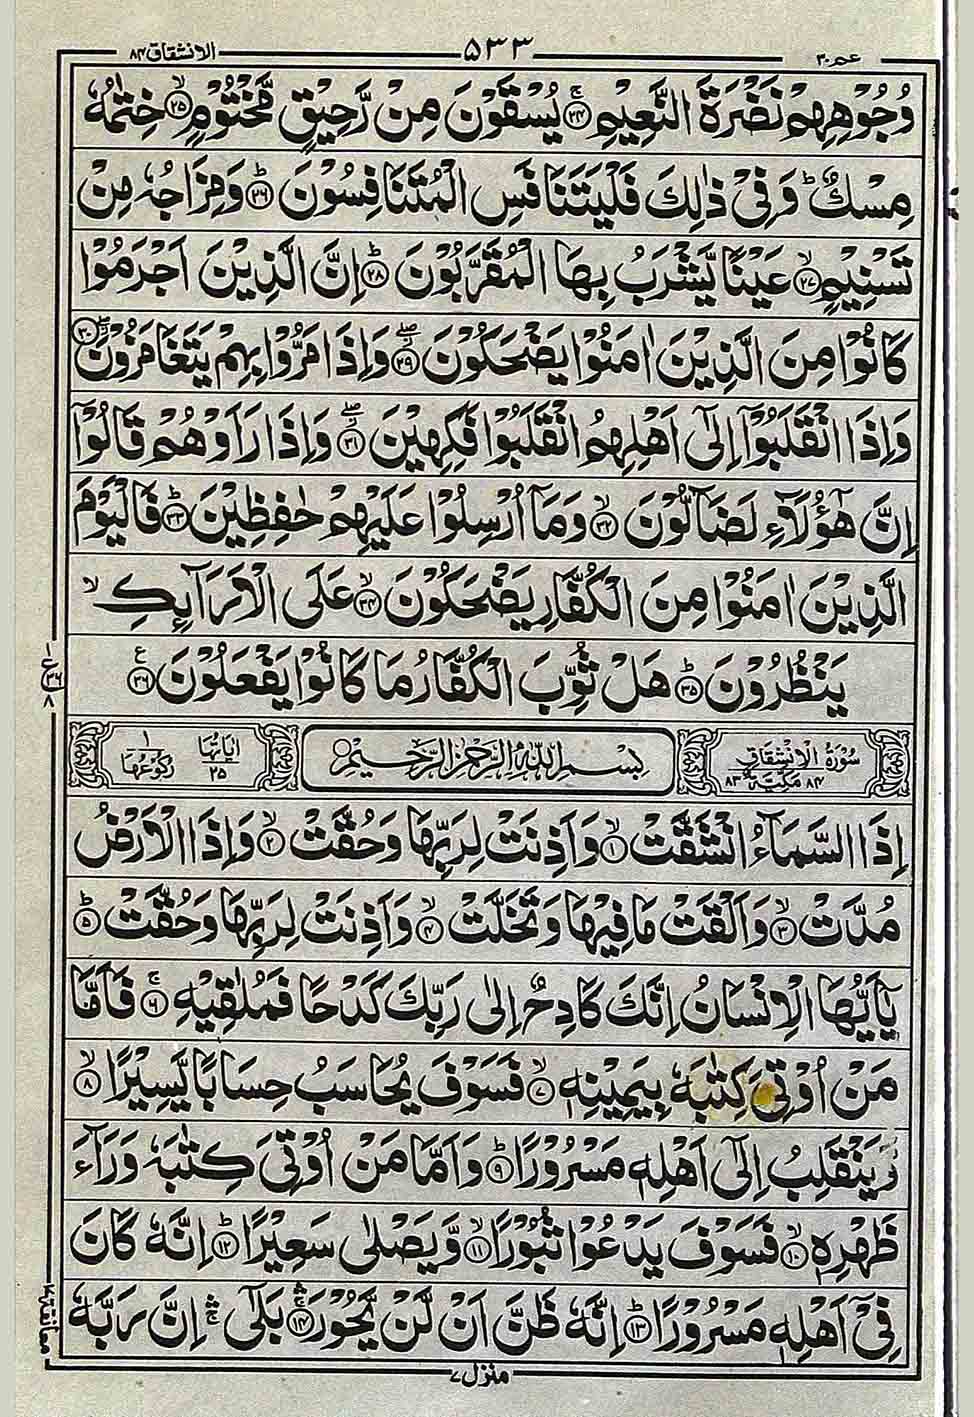 عم ٣٠
٥٣٣
الانشقاق ٨٤
وُجُوْهِهِمْ نَضْرَةَ النَّعِيْمِ ۚ﴿۲۴﴾ يُسْقَوْنَ مِنْ رَّحِيْقٍ مَّخْتُوْمٍ ۙ﴿۲۵﴾ خِتٰمُهٗ
مِسْكٌ ؕ وَ فِيْ ذٰلِكَ فَلْيَتَنَافَسِ الْمُتَنَافِسُوْنَ ؕ﴿۲۶﴾ وَ مِزَاجُهٗ مِنْ
تَسْنِيْمٍ ۙ﴿۲۷﴾ عَيْنًا يَّشْرَبُ بِهَا الْمُقَرَّبُوْنَ ؕ﴿۲۸﴾ اِنَّ الَّذِيْنَ اَجْرَمُوْا
كَانُوْا مِنَ الَّذِيْنَ اٰمَنُوْا يَضْحَكُوْنَ ۫ۖ﴿۲۹﴾ وَ اِذَا مَرُّوْا بِهِمْ يَتَغَامَزُوْنَ ۫ۖ﴿۳۰﴾
وَ اِذَا انْقَلَبُوْۤا اِلٰۤى اَهْلِهِمُ انْقَلَبُوْا فَكِهِيْنَ ۫ۖ﴿۳۱﴾ وَ اِذَا رَاَوْهُمْ قَالُوْۤا
اِنَّ هٰۤؤُلَآءِ لَضَآلُّوْنَ ۙ﴿۳۲﴾ وَ مَاۤ اُرْسِلُوْا عَلَيْهِمْ حٰفِظِيْنَ ؕ﴿۳۳﴾ فَالْيَوْمَ
الَّذِيْنَ اٰمَنُوْا مِنَ الْكُفَّارِ يَضْحَكُوْنَ ۙ﴿۳۴﴾ عَلَى الْاَرَآىِٕكِ ۙ
يَنْظُرُوْنَ ؕ﴿۳۵﴾ هَلْ ثُوِّبَ الْكُفَّارُ مَا كَانُوْا يَفْعَلُوْنَ ۠﴿۳۶﴾
سُوْرَةُ الْاِنْشِقَاقِ ٨٤ مَكِّيَّةٌ ٨٣
بِسْمِ اللّٰهِ الرَّحْمٰنِ الرَّحِيْمِ
اٰيَاتُهَا ٢٥
رُكُوْعُهَا ١
اِذَا السَّمَآءُ انْشَقَّتْ ۙ﴿۱﴾ وَ اَذِنَتْ لِرَبِّهَا وَ حُقَّتْ ۙ﴿۲﴾ وَ اِذَا الْاَرْضُ
مُدَّتْ ۙ﴿۳﴾ وَ اَلْقَتْ مَا فِيْهَا وَ تَخَلَّتْ ۙ﴿۴﴾ وَ اَذِنَتْ لِرَبِّهَا وَ حُقَّتْ ؕ﴿۵﴾
يٰۤاَيُّهَا الْاِنْسَانُ اِنَّكَ كَادِحٌ اِلٰى رَبِّكَ كَدْحًا فَمُلٰقِيْهِ ۚ﴿۶﴾ فَاَمَّا
مَنْ اُوْتِيَ كِتٰبَهٗ بِيَمِيْنِهٖ ۙ﴿۷﴾ فَسَوْفَ يُحَاسَبُ حِسَابًا يَّسِيْرًا ۙ﴿۸﴾
وَّ يَنْقَلِبُ اِلٰۤى اَهْلِهٖ مَسْرُوْرًا ؕ﴿۹﴾ وَ اَمَّا مَنْ اُوْتِيَ كِتٰبَهٗ وَرَآءَ
ظَهْرِهٖ ۙ﴿۱۰﴾ فَسَوْفَ يَدْعُوْا ثُبُوْرًا ۙ﴿۱۱﴾ وَّ يَصْلٰى سَعِيْرًا ؕ﴿۱۲﴾ اِنَّهٗ كَانَ
فِيْۤ اَهْلِهٖ مَسْرُوْرًا ؕ﴿۱۳﴾ اِنَّهٗ ظَنَّ اَنْ لَّنْ يَّحُوْرَ ۚۛ﴿۱۴﴾ بَلٰۤى ۚۛ اِنَّ رَبَّهٗ
منزل ٧